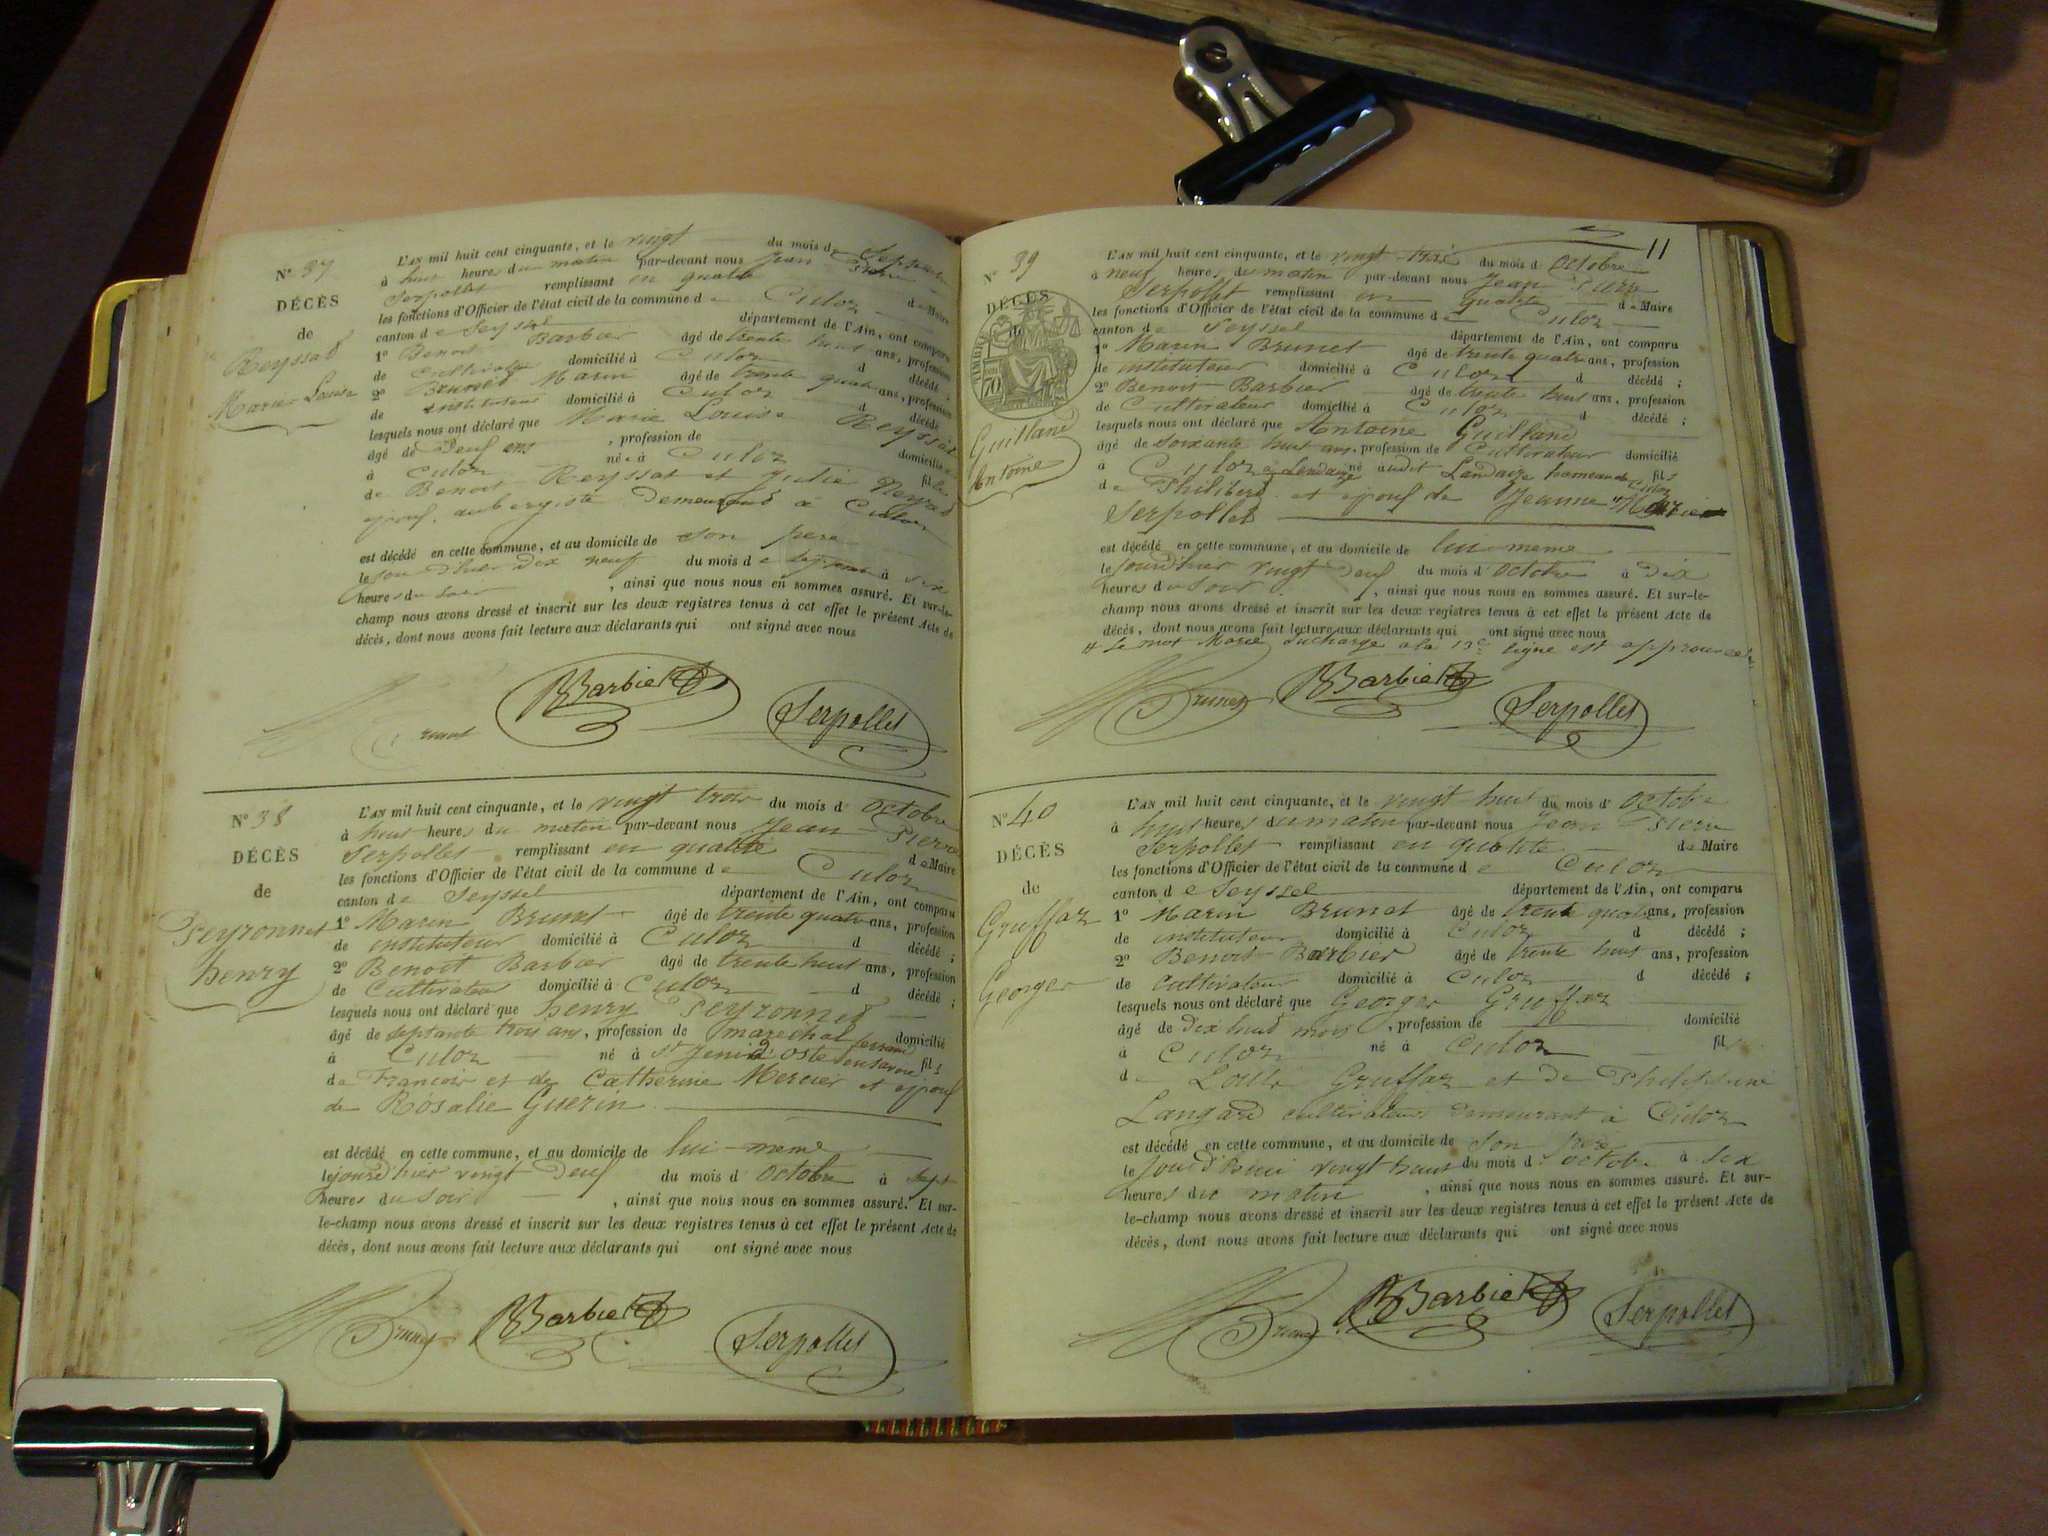 N° 37
DÉCÈS
de
Reyssat
Marie Louise
L'AN mil huit cent cinquante, et le vingt du mois de Septembre
à huit heures du matin par-devant nous Jean Pierre
Serpollet remplissant en qualité de Maire
les fonctions d'Officier de l'état civil de la commune de Culoz
canton de Seyssel département de l'Ain, ont comparu
1° Benoit Barbier âgé de trente huit ans, profession
de cultivateur domicilié à Culoz d décédé ;
2° Brunet Marin âgé de trente quatre ans, profession
de instituteur domicilié à Culoz d décédé
lesquels nous ont déclaré que Marie Louise Reyssat
âgé de Deux ans , profession de domicilié
à Culoz née à Culoz fille
de Benoit Reyssat et Julie Neyret
epoux aubergiste demeurant à Culoz
est décédé en cette commune, et au domicile de son père
le jour d'hier dix neuf du mois de septembre à six
heures du soir , ainsi que nous nous en sommes assuré. Et sur-le-
champ nous avons dressé et inscrit sur les deux registres tenus à cet effet le présent Acte de
décès, dont nous avons fait lecture aux déclarants qui ont signé avec nous
Brunet BBarbier Serpollet
N° 38
DÉCÈS
de
Peyronnet
henry
L'AN mil huit cent cinquante, et le vingt trois du mois d' Octobre
à huit heures du matin par-devant nous Jean Pierre
Serpollet remplissant en qualité de Maire
les fonctions d'Officier de l'état civil de la commune de Culoz
canton de Seyssel département de l'Ain, ont comparu
1° Marin Brunet âgé de trente quatre ans, profession
de instituteur domicilié à Culoz d décédé ;
2° Benoit Barbier âgé de trente huit ans, profession
de Cultivateur domicilié à Culoz d décédé ;
lesquels nous ont déclaré que henry Peyronnet
âgé de septante trois ans, profession de marechal ferrant domicilié
à Culoz né à St Jenid oste en savoie fils
de Francois et de Catherine Mercier et epoux
de Rosalie Guerin
est décédé en cette commune, et au domicile de lui-meme
le jourd'hier vingt Deux du mois d' Octobre à sept
heures du soir , ainsi que nous nous en sommes assuré. Et sur-
le-champ nous avons dressé et inscrit sur les deux registres tenus à cet effet le présent Acte de
décès, dont nous avons fait lecture aux déclarants qui ont signé avec nous
Brunet BBarbier Serpollet
11
N° 39
DÉCÈS
Guilland
Antoine
L'AN mil huit cent cinquante, et le vingt-trois du mois d' Octobre
à neuf heures du matin par-devant nous Jean Pierre
Serpollet remplissant en qualité de Maire
les fonctions d'Officier de l'état civil de la commune de Culoz
canton de Seyssel département de l'Ain, ont comparu
1° Marin Brunet âgé de trente quatre ans, profession
de instituteur domicilié à Culoz d décédé ;
2° Benoit Barbier âgé de trente huit ans, profession
de Cultivateur domicilié à Culoz d décédé ;
lesquels nous ont déclaré que Antoine Guilland
âgé de soixante huit ans, profession de Cultivateur domicilié
à Culoz à Landaize né audit Landaize hameau de Culoz fils
de Philibert et epoux de Jeanne # Marie
Serpollet
est décédé en cette commune, et au domicile de lui-meme
le jourd'hier vingt Deux du mois d' Octobre à Dix
heures du soir , ainsi que nous nous en sommes assuré. Et sur-le-
champ nous avons dressé et inscrit sur les deux registres tenus à cet effet le présent Acte de
décès, dont nous avons fait lecture aux déclarants qui ont signé avec nous
# Le mot Marie surchargé a la 13e ligne est approuvé
Brunet BBarbier Serpollet
N° 40
DÉCÈS
de
Gruffaz
George
L'AN mil huit cent cinquante, et le vingt-huit du mois d' Octobre
à huit heures du matin par-devant nous Jean Pierre
Serpollet remplissant en qualité de Maire
les fonctions d'Officier de l'état civil de la commune de Culoz
canton de Seyssel département de l'Ain, ont comparu
1° Marin Brunet âgé de trente quatre ans, profession
de instituteur domicilié à Culoz d décédé ;
2° Benoit Barbier âgé de trente huit ans, profession
de Cultivateur domicilié à Culoz d décédé ;
lesquels nous ont déclaré que George Gruffaz
âgé de Dix huit mois , profession de domicilié
à Culoz né à Culoz fils
de Louis Gruffaz et de Philippine
Langard cultivateurs demeurant à Culoz
est décédé en cette commune, et au domicile de son père
le jourd'hui vingt huit du mois d' octobre à six
heures du matin , ainsi que nous nous en sommes assuré. Et sur-
le-champ nous avons dressé et inscrit sur les deux registres tenus à cet effet le présent Acte de
décès, dont nous avons fait lecture aux déclarants qui ont signé avec nous
Brunet BBarbier Serpollet